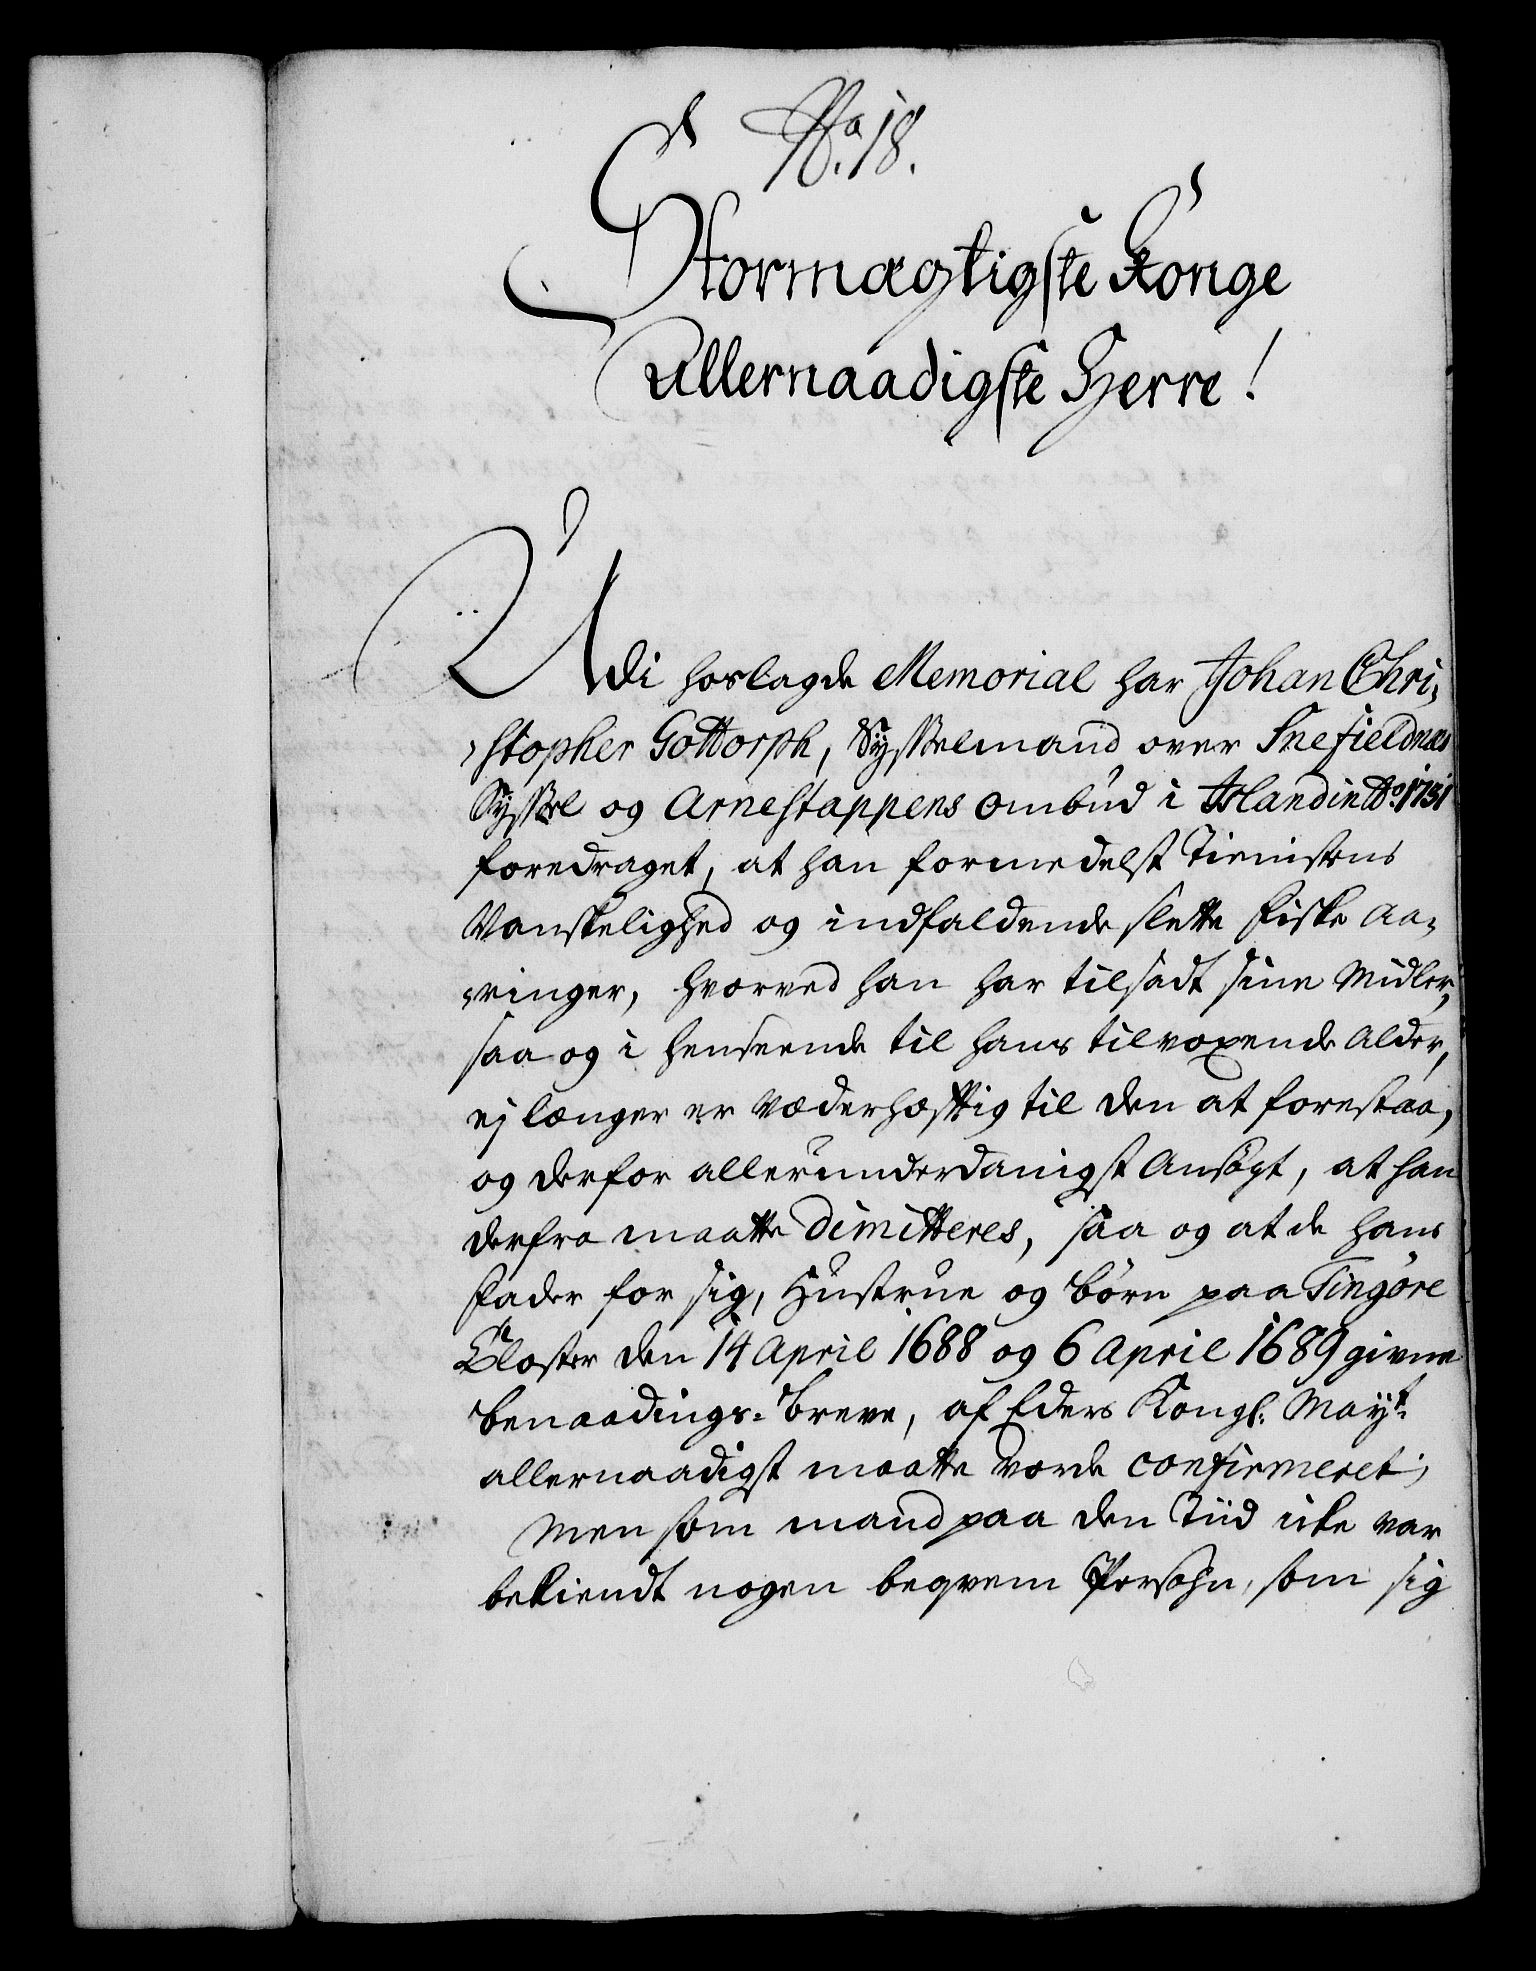 No. 18.
Stormægtigste Konge
Allernaadigste Herre!
Udi hoslagde Memorial har Johan Chri-
-stopher Gottorph, Sysselmand over Snefieldnæs
Syssel og Arnestappens ombud i Island in Ao. 1731
foredraget, at han formedelst Tienistens
Vanskelighed og indfaldende slette Fiske Aa-
-ringer, hvorved han har tilsadt sine Midler,
saa og i henseende til hans tilvoxende Alder,
ej længer er Væderhæftig til den at forestaa,
og derfor allerunderdanigst Ansøgt, at han
derfra maatte dimitteres, saa og at de hans
Fader for sig, Hustrue og Børn paa Tingøre
Closter den 14 April 1688 og 6 April 1689 givne
benaadings-Breve, af Eders Kongl: Mayt:
allernaadigst maatte vorde confirmeret;
Men som mand paa den Tiid icke var
bekiendt nogen beqvem Persohn, som sig